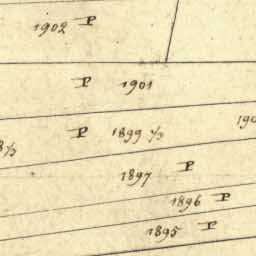 1902 P
P 1901
P 1899 1/3
190
8 1/3
1897 P
1896 P
1895 P